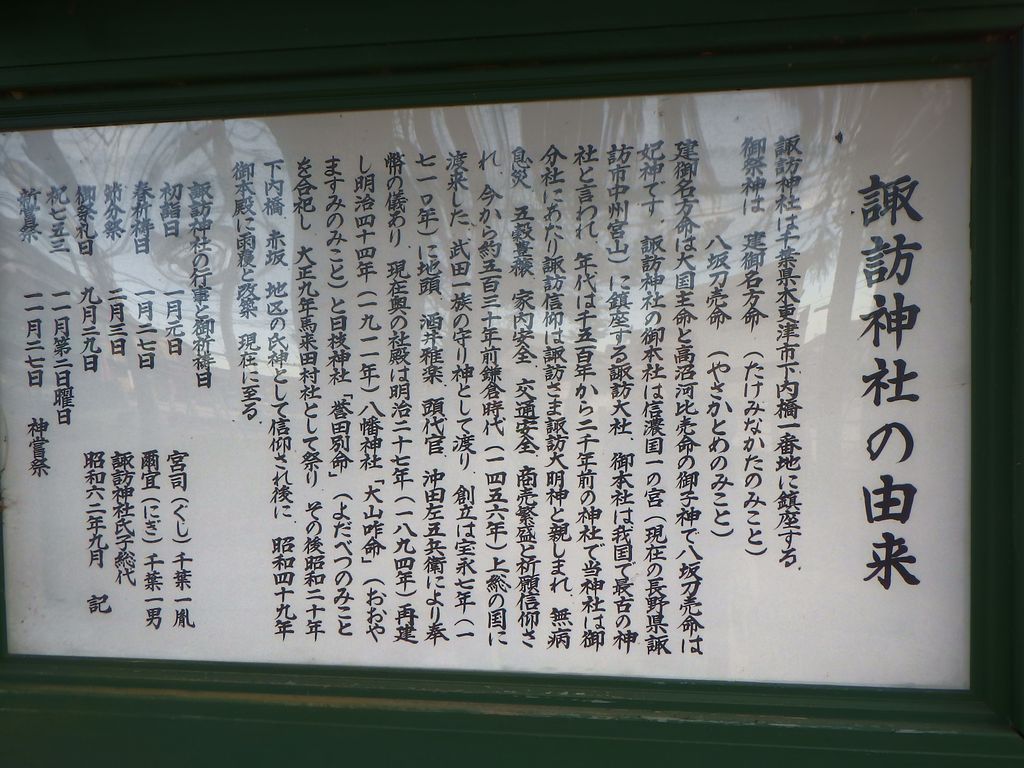 諏訪神社の由来
諏訪神社は千葉県木更津市下内橋一番地に鎮座する。
御祭神は 建御名方命 (たけみなかたのみこと)
八坂刀売命 (やさかとめのみこと)
建御名方命は大国主命と高沼河比売命の御子神で八坂刀売命は
妃神です。諏訪神社の御本社は信濃国一の宮(現在の長野県諏
訪市中州宮山)に鎮座する諏訪大社、御本社は我国で最古の神
社と言われ、年代は千五百年から二千年前の神社で当神社は御
分社にあたり諏訪信仰は諏訪さま諏訪大明神と親しまれ、無病
息災 五穀豊穣 家内安全 交通安全 商売繁盛と祈願信仰さ
れ、今から約五百三十年前鎌倉時代(一四五六年)上総の国に
渡来した。武田一族の守り神として渡り 創立は宝永七年(一
七一〇年)に地頭、酒井雅楽、頭代官 沖田左五兵衛により奉
幣の儀あり、現在奥の社殿は明治二十七年(一八九四年)再建
し明治四十四年(一九一一年)八幡神社「大山咋命」(おおや
ますみのみこと)と日枝神社「誉田別命」(よだべつのみこと
を合祀し、大正九年馬来田村社として祭り、その後昭和二十年
下内橋、赤坂、地区の氏神として信仰され後に、昭和四十九年
御本殿に雨覆と改築、現在に至る。
諏訪神社の行事と御祈祷日
初詣日 一月元日
春祈祷日 一月二七日
節分祭 二月三日
御祭礼日 九月二九日
祝七五三 一一月第二日曜日
新嘗祭 一一月二七日 神嘗祭
宮司(ぐし)千葉一胤
禰宜(にぎ)千葉一男
諏訪神社氏子総代
昭和六二年九月 記